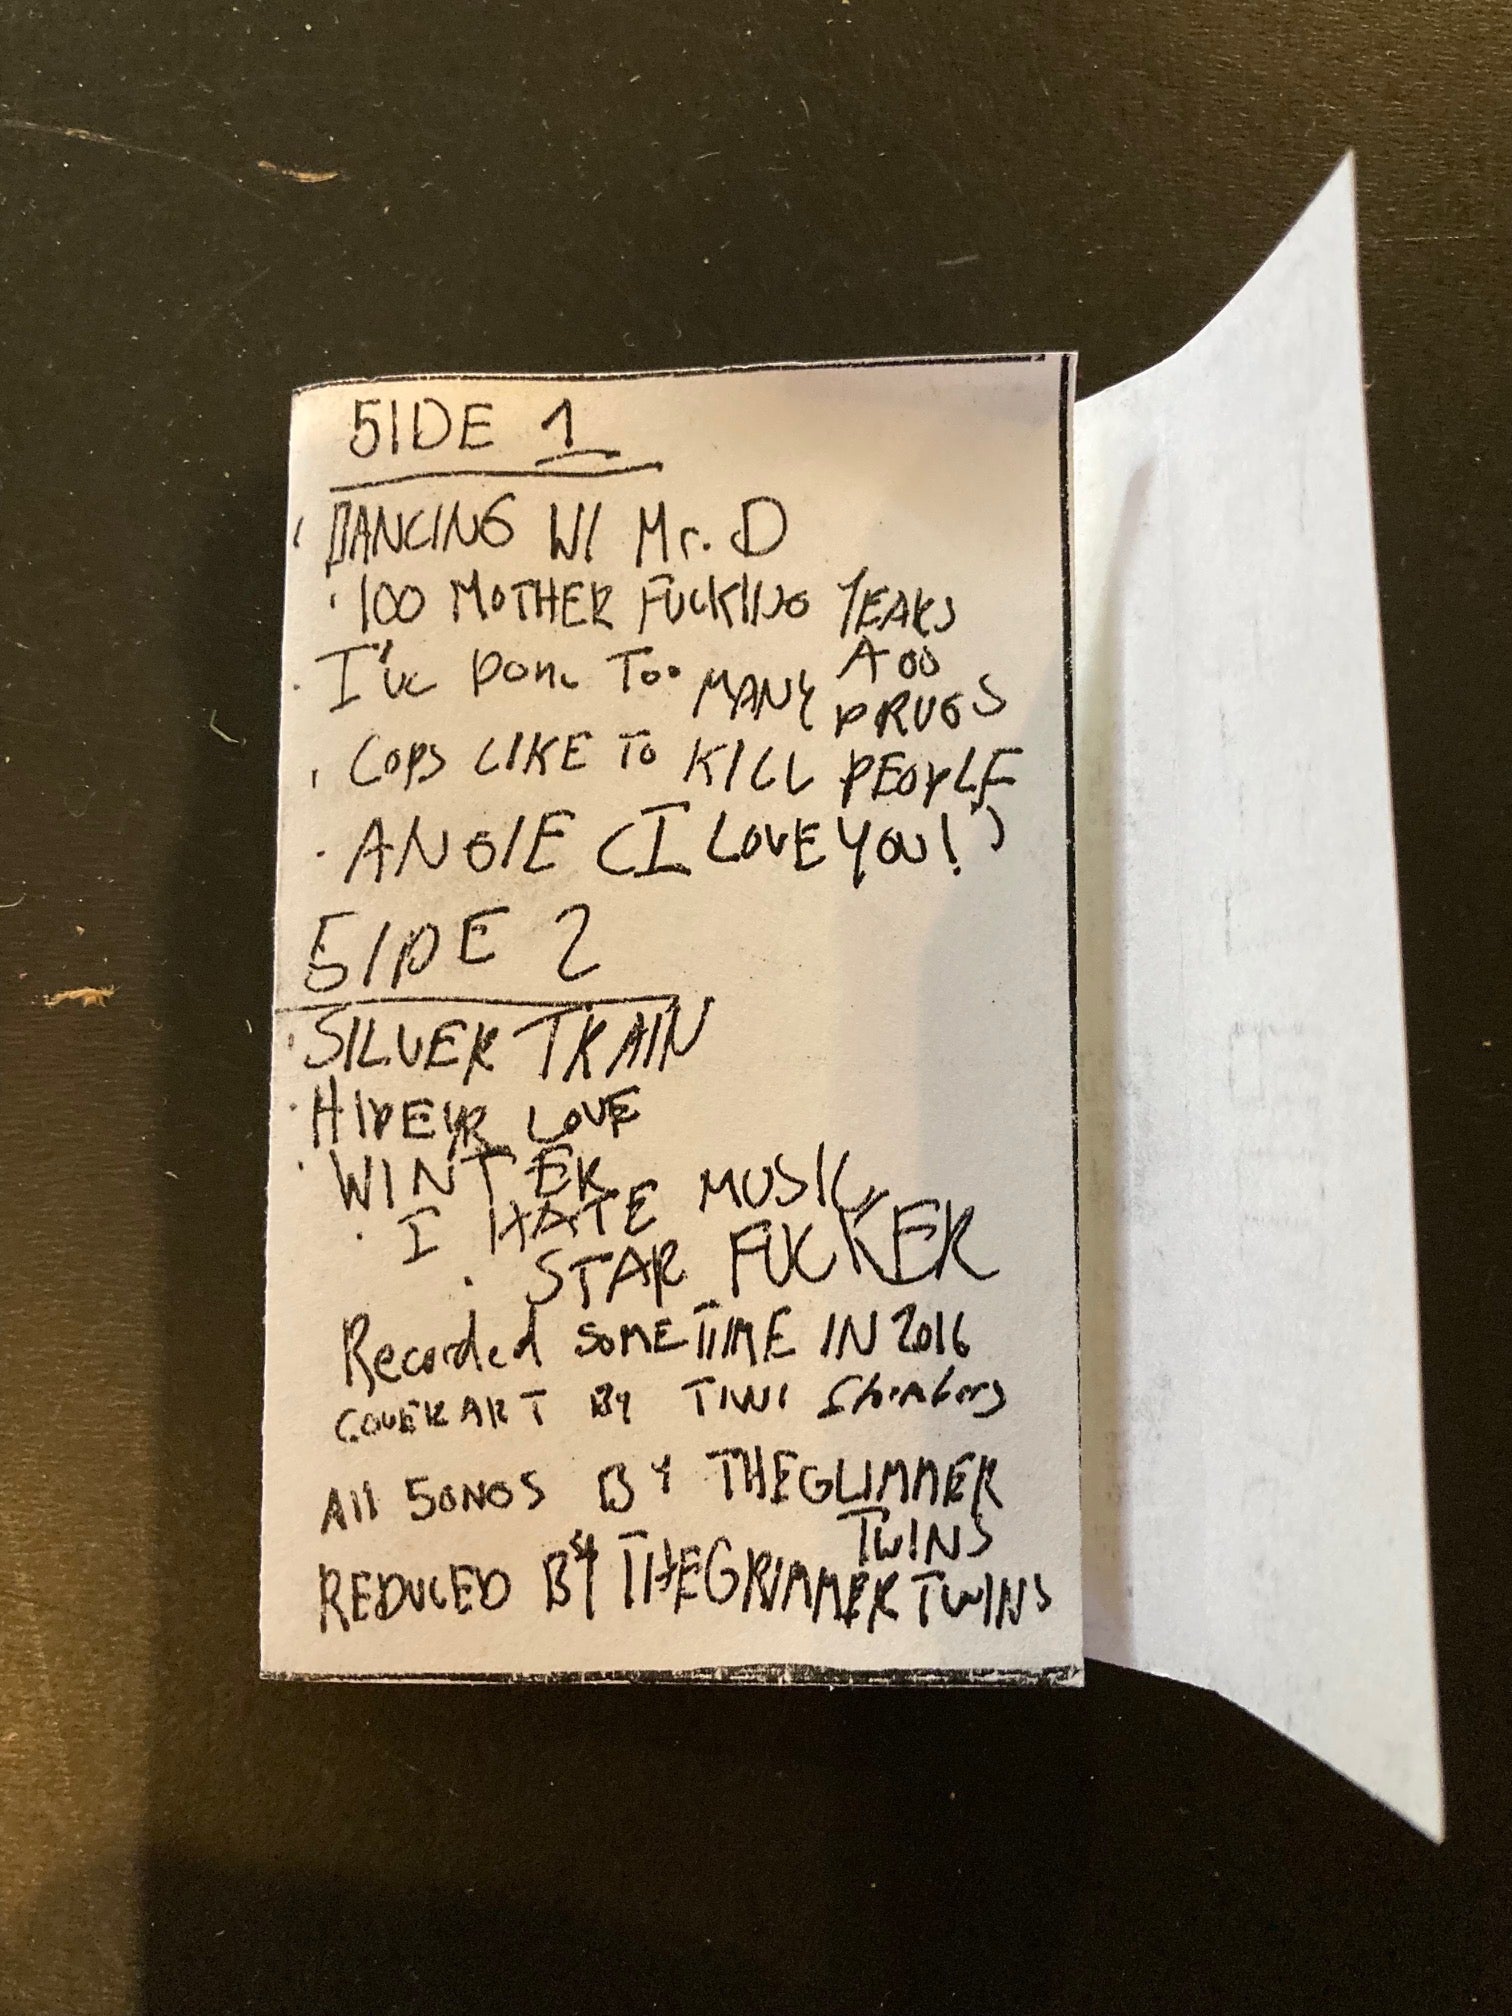 SIDE 1
DANCING W/ Mr. D
100 MOTHER FUCKING YEARS
AGO
I've Done Too MANY DRUGS
COPS LIKE TO KILL PEOPLE
ANGIE (I LOVE YOU!)
SIDE 2
SILVER TRAIN
HIDE YR LOVE
WINTER
I HATE MUSIC
STAR FUCKER
Recorded SOMETIME IN 2016
COVER ART BY
All SONGS BY THE GLIMMER
TWINS
REDUCED BY THE GRIMMER TWINS